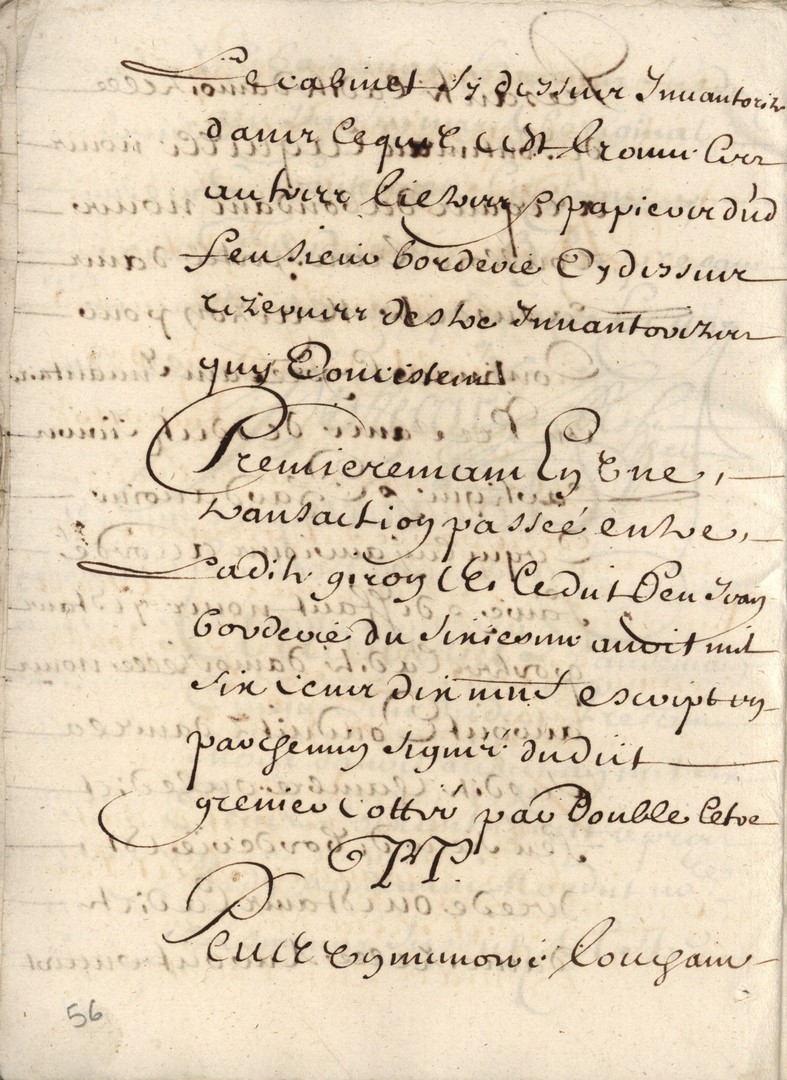 Le cabinet sy dessus Inuantorize
dans lequel est trouue les
autres tiltres & papiers dud
feu sieur borderie Cy dessus
rezerues destre Inuantorizes
quy Concistent
Premieremant En Une
transaction passée entre
Ladite giron Et Ledit feu Jean
borderie du sixiesme auoit mil
six cens dix neuf escript en
parchemin signée dudict
grenier Cottée par double letre
PP.
Plus Un memoire touchant
56